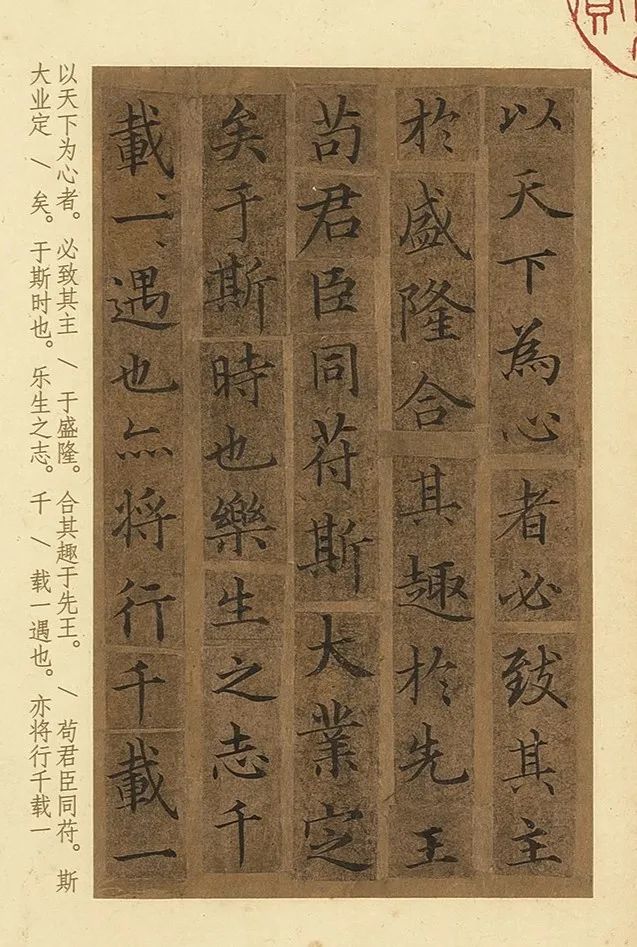 以天下為心者必致其主
於盛隆合其趣於先王
苟君臣同苻斯大業定
矣于斯時也樂生之志千
載一遇也亦将行千載一
以天下为心者。必致其主 / 于盛隆。合其趣于先王。 / 苟君臣同苻。斯
大业定 / 矣。于斯时也。乐生之志。千 / 载一遇也。亦将行千载一